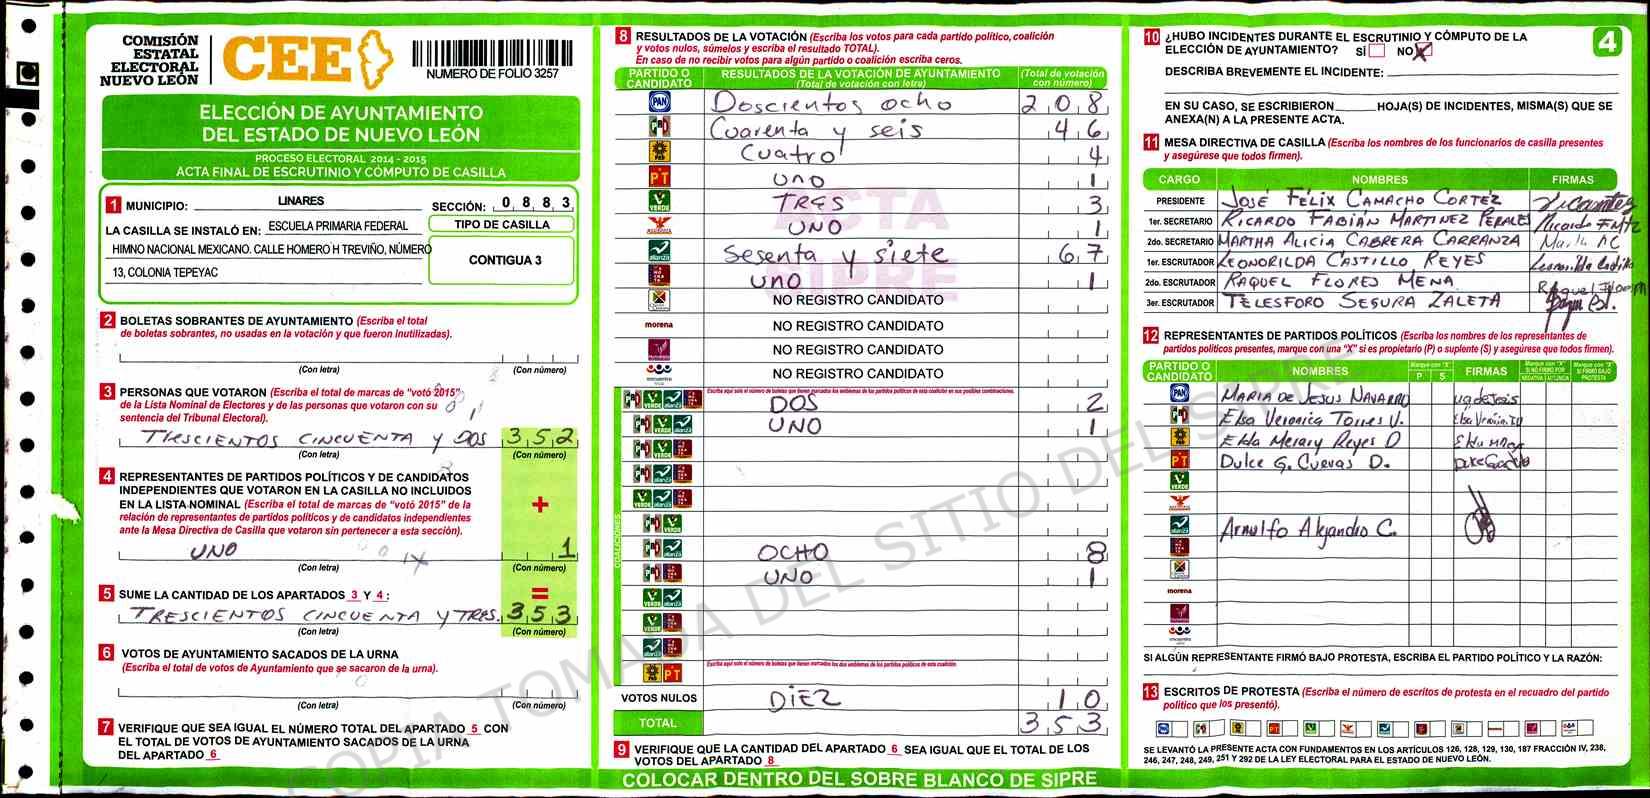 COMISIÓN
ESTATAL
ELECTORAL
NUEVO LEÓN
CEE
NUMERO DE FOLIO 3257
ELECCIÓN DE AYUNTAMIENTO
DEL ESTADO DE NUEVO LEÓN
PROCESO ELECTORAL 2014 - 2015
ACTA FINAL DE ESCRUTINIO Y CÓMPUTO DE CASILLA
1 MUNICIPIO: LINARES SECCIÓN: 0 8 8 3
LA CASILLA SE INSTALÓ EN: ESCUELA PRIMARIA FEDERAL
HIMNO NACIONAL MEXICANO. CALLE HOMERO H TREVIÑO, NÚMERO
13, COLONIA TEPEYAC
TIPO DE CASILLA
CONTIGUA 3
2 BOLETAS SOBRANTES DE AYUNTAMIENTO (Escriba el total
de boletas sobrantes, no usadas en la votación y que fueron inutilizadas).
(Con letra) (Con número)
3 PERSONAS QUE VOTARON (Escriba el total de marcas de "votó 2015"
de la Lista Nominal de Electores y de las personas que votaron con su
sentencia del Tribunal Electoral).
TRESCIENTOS CINCUENTA Y DOS 3 5 2
(Con letra) (Con número)
4 REPRESENTANTES DE PARTIDOS POLÍTICOS Y DE CANDIDATOS
INDEPENDIENTES QUE VOTARON EN LA CASILLA NO INCLUIDOS
EN LA LISTA NOMINAL (Escriba el total de marcas de "votó 2015" de la
relación de representantes de partidos políticos y de candidatos independientes
ante la Mesa Directiva de Casilla que votaron sin pertenecer a esta sección).
+
UNO 1
(Con letra) (Con número)
5 SUME LA CANTIDAD DE LOS APARTADOS 3 Y 4 : =
TRESCIENTOS CINCUENTA Y TRES. 3 5 3
(Con letra) (Con número)
6 VOTOS DE AYUNTAMIENTO SACADOS DE LA URNA
(Escriba el total de votos de Ayuntamiento que se sacaron de la urna).
(Con letra) (Con número)
7 VERIFIQUE QUE SEA IGUAL EL NÚMERO TOTAL DEL APARTADO 5 CON
EL TOTAL DE VOTOS DE AYUNTAMIENTO SACADOS DE LA URNA
DEL APARTADO 6
8 RESULTADOS DE LA VOTACIÓN (Escriba los votos para cada partido político, coalición
y votos nulos, súmelos y escriba el resultado TOTAL).
En caso de no recibir votos para algún partido o coalición escriba ceros.
PARTIDO O CANDIDATO RESULTADOS DE LA VOTACIÓN DE AYUNTAMIENTO (Total de votación con letra) (Total de votación con número)
PAN Doscientos ocho 2 0 8
PRI Cuarenta y seis 4 6
PRD Cuatro 4
PT UNO 1
VERDE TRES 3
UNO 1
alianza Sesenta y siete 6 7
uno 1
NO REGISTRO CANDIDATO
morena NO REGISTRO CANDIDATO
NO REGISTRO CANDIDATO
encuentro NO REGISTRO CANDIDATO
ACTA
SIPRE
COALICIONES
DOS 2
UNO 1
OCHO 8
UNO 1
VOTOS NULOS DIEZ 1 0
TOTAL 3 5 3
9 VERIFIQUE QUE LA CANTIDAD DEL APARTADO 6 SEA IGUAL QUE EL TOTAL DE LOS
VOTOS DEL APARTADO 8
COLOCAR DENTRO DEL SOBRE BLANCO DE SIPRE
10 ¿HUBO INCIDENTES DURANTE EL ESCRUTINIO Y CÓMPUTO DE LA
ELECCIÓN DE AYUNTAMIENTO? SÍ NO X
4
DESCRIBA BREVEMENTE EL INCIDENTE:
EN SU CASO, SE ESCRIBIERON HOJA(S) DE INCIDENTES, MISMA(S) QUE SE
ANEXA(N) A LA PRESENTE ACTA.
11 MESA DIRECTIVA DE CASILLA (Escriba los nombres de los funcionarios de casilla presentes
y asegúrese que todos firmen).
CARGO NOMBRES FIRMAS
PRESIDENTE JOSÉ FÉLIX CAMACHO CORTÉZ
1er. SECRETARIO RICARDO FABIÁN MARTINEZ PERALES
2do. SECRETARIO MARTHA ALICIA CABRERA CARRANZA
1er. ESCRUTADOR LEONORILDA CASTILLO REYES
2do. ESCRUTADOR RAQUEL FLORES MENA
3er. ESCRUTADOR TELESFORO SEGURA ZALETA
12 REPRESENTANTES DE PARTIDOS POLÍTICOS (Escriba los nombres de los representantes de
partidos políticos presentes, marque con una "X" si es propietario (P) o suplente (S) y asegúrese que todos firmen).
PARTIDO O CANDIDATO NOMBRES P S FIRMAS
PAN MARIA DE JESUS NAVARRO
PRI Elsa Veronica Torres V.
PRD Elda Merary Reyes D
PT Dulce G. Cuevas D.
VERDE
alianza Arnulfo Alejandro C.
morena
encuentro
SI ALGÚN REPRESENTANTE FIRMÓ BAJO PROTESTA, ESCRIBA EL PARTIDO POLÍTICO Y LA RAZÓN:
13 ESCRITOS DE PROTESTA (Escriba el número de escritos de protesta en el recuadro del partido
político que los presentó).
SE LEVANTÓ LA PRESENTE ACTA CON FUNDAMENTOS EN LOS ARTÍCULOS 126, 128, 129, 130, 187 FRACCIÓN IV, 238,
246, 247, 248, 249, 251 Y 292 DE LA LEY ELECTORAL PARA EL ESTADO DE NUEVO LEÓN.
COPIA TOMADA DEL SITIO DEL SIPRE